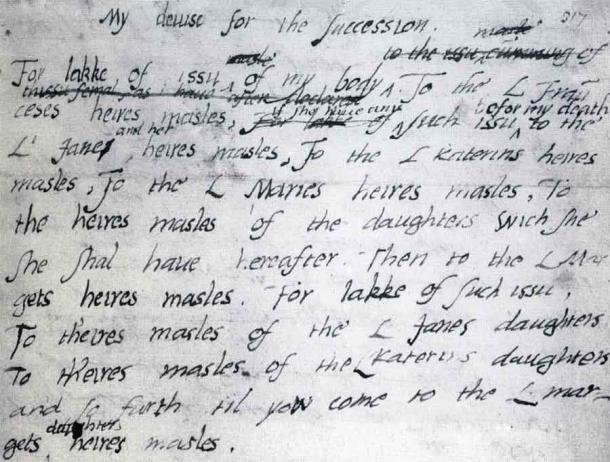 My deuise for the succession. 317
For lakke of issu masle of my body to the issu cumming of
thissu femal, as i haue after declared
To the L Frau
ceses heires masles, if she haue any For lakke of such issu befor my death to the
L' Janes and her heires masles, To the L Katerins heires
masles, To the L Maries heires masles, To
the heires masles of the daughters wich she
she shal haue hereafter. Then to the L Mar
gets heires masles. For lakke of such issu,
To th'eires masles of the L Janes daughters
To th'eires masles of the L Katerins daughters
and so forth til yow come to the L mar-
gets daughters heires masles.